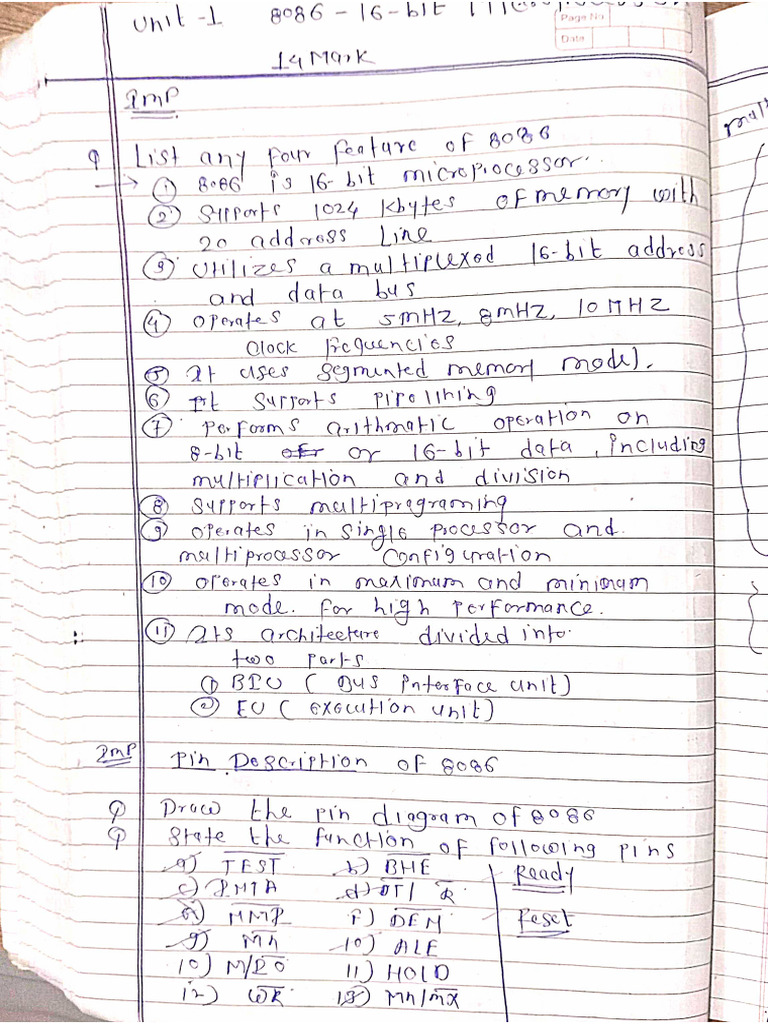 Unit -1 8086 - 16-bit
Page No
Date
14 Mark
Imp
Q List any four feature of 8086
→ ① 8086 is 16-bit microprocessor.
② Supports 1024 kbytes of memory with
20 address line
③ Utilizes a multiplexed 16-bit address
and data bus
④ operates at 5MHZ, 8MHZ, 10 MHZ
clock frequencies
⑤ It uses segmented memory model.
⑥ It supports pipelining
⑦ performs arithmatic operation on
8-bit or 16-bit data, including
multiplication and division
⑧ supports multiprograming
⑨ operates in single processor and
multiprocessor configuration
⑩ operates in maximum and minimum
mode. for high performance.
⑪ Its architecture divided into
two parts
① BIU ( Bus Interface unit)
② EU ( execution unit)
Imp Pin Description of 8086
Q Draw the pin diagram of 8086
Q State the function of following pins
a) TEST b) BHE Ready
c) d) DT/ R
f) DEN Reset
g) 10) ALE
10) M/IO 11) HOLD
12) WR 13) MN/MX